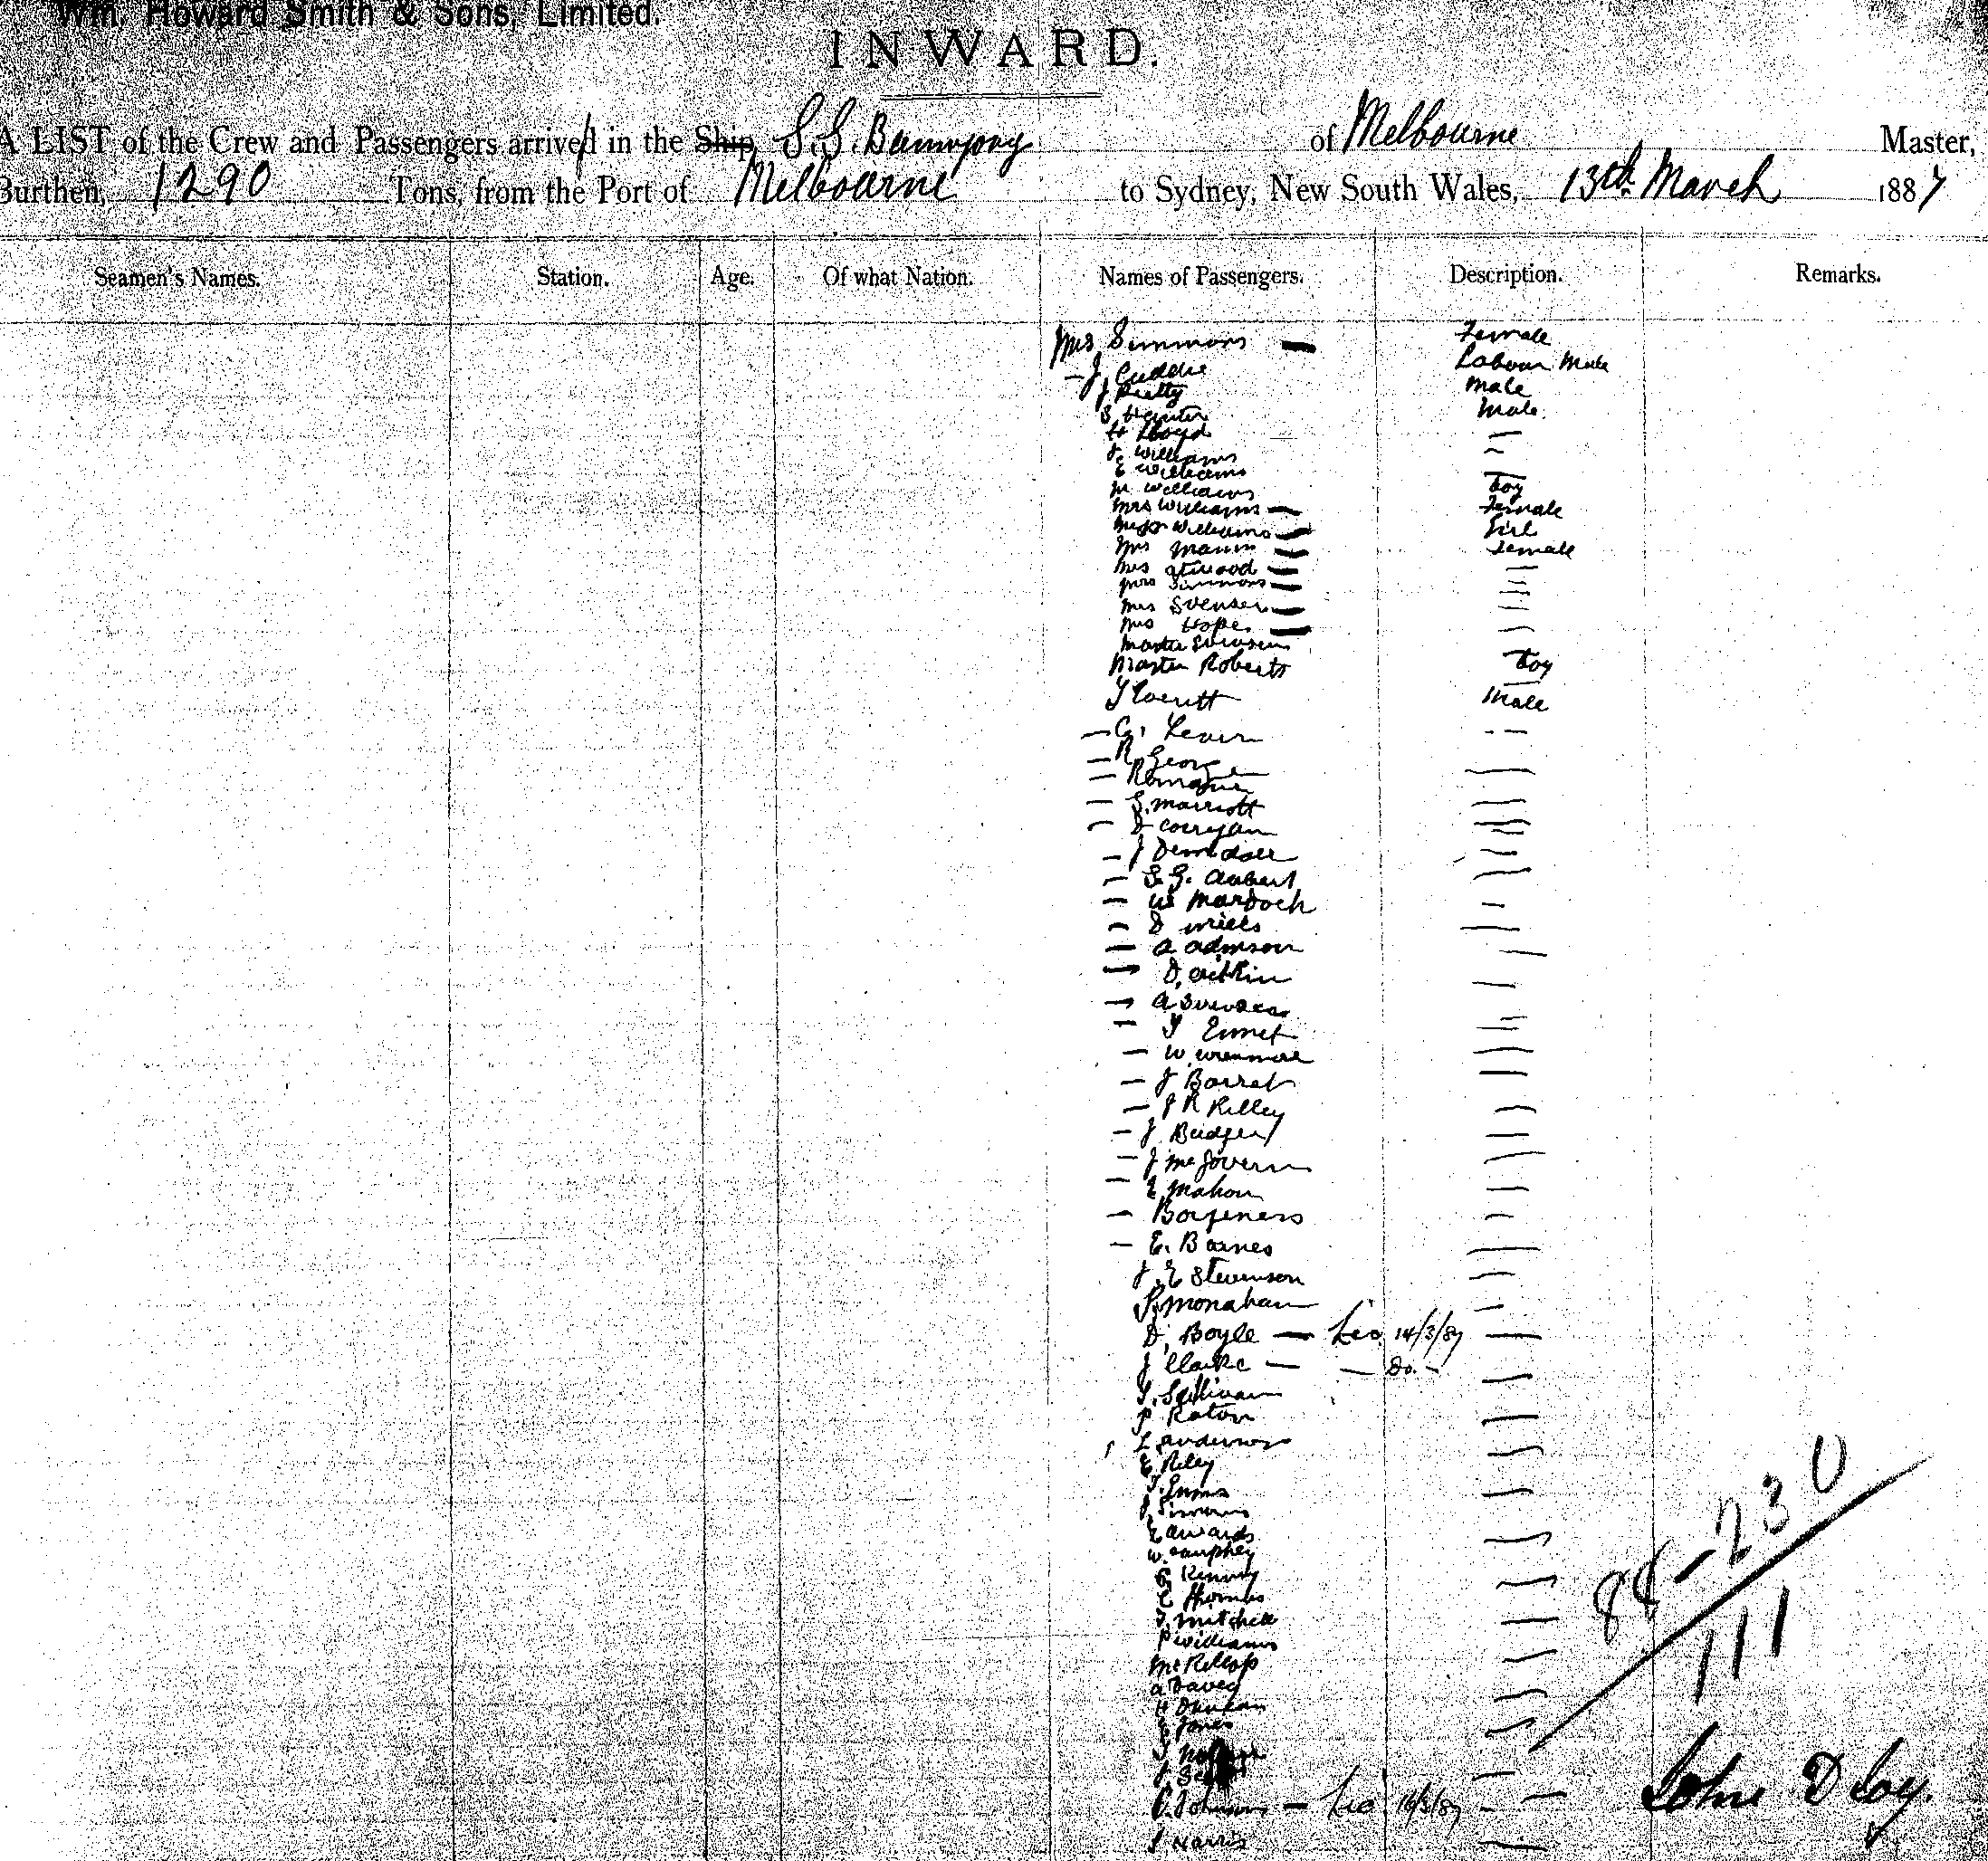 Wm. Howard Smith & Sons, Limited.
INWARD.
A LIST of the Crew and Passengers arrived in the Ship S.S. Bunnyong of Melbourne Master,
Burthen, 1290 Tons, from the Port of Melbourne to Sydney, New South Wales, 13th March 1887
Seamen's Names. Station. Age. Of what Nation. Names of Passengers. Description. Remarks.
Mrs Simmons — Female
— J. Cuddie Labour Male
J Pretty Male
S. Hunter Male
H Lloyd —
J Williams
E Williams
M Williams Boy
Mrs Williams — Female
Miss Williams — Girl
Mrs Mann — Female
Mrs Atwood —
Mrs Simmons —
Mrs Svensen —
Mrs Hope —
Master Svensen
Master Roberts Boy
J Everitt Male
— G. Lever
— R George
—
— S. Marriott
— D Corrigan
— J
— S. G. Aubert
— W Murdoch
— D Mills
— A Admson
— D. Aitkin
— A
— J Emmet
— W. Wrenmore
— J Barret
— J R Rilley
— J Bridger
— J McGovern
— E Mahon
—
— E. Barnes
J. E Stevenson
P. Monahan
D. Boyle — Leo 14/3/87
J Clarke — — Do. —
J. Sullivan
P Raton
L Anderson
E Riley
J. Inms
J Simmons
Edwards
W.
G Kenny
E Thombs
J. Mitchell
P Williams
McKillop
A Davey
H Duncan
E Jones
J
J. Scott
C. Johnson — Leo 14/3/87
J Harris
88 - 23 0
111
John D Loy.